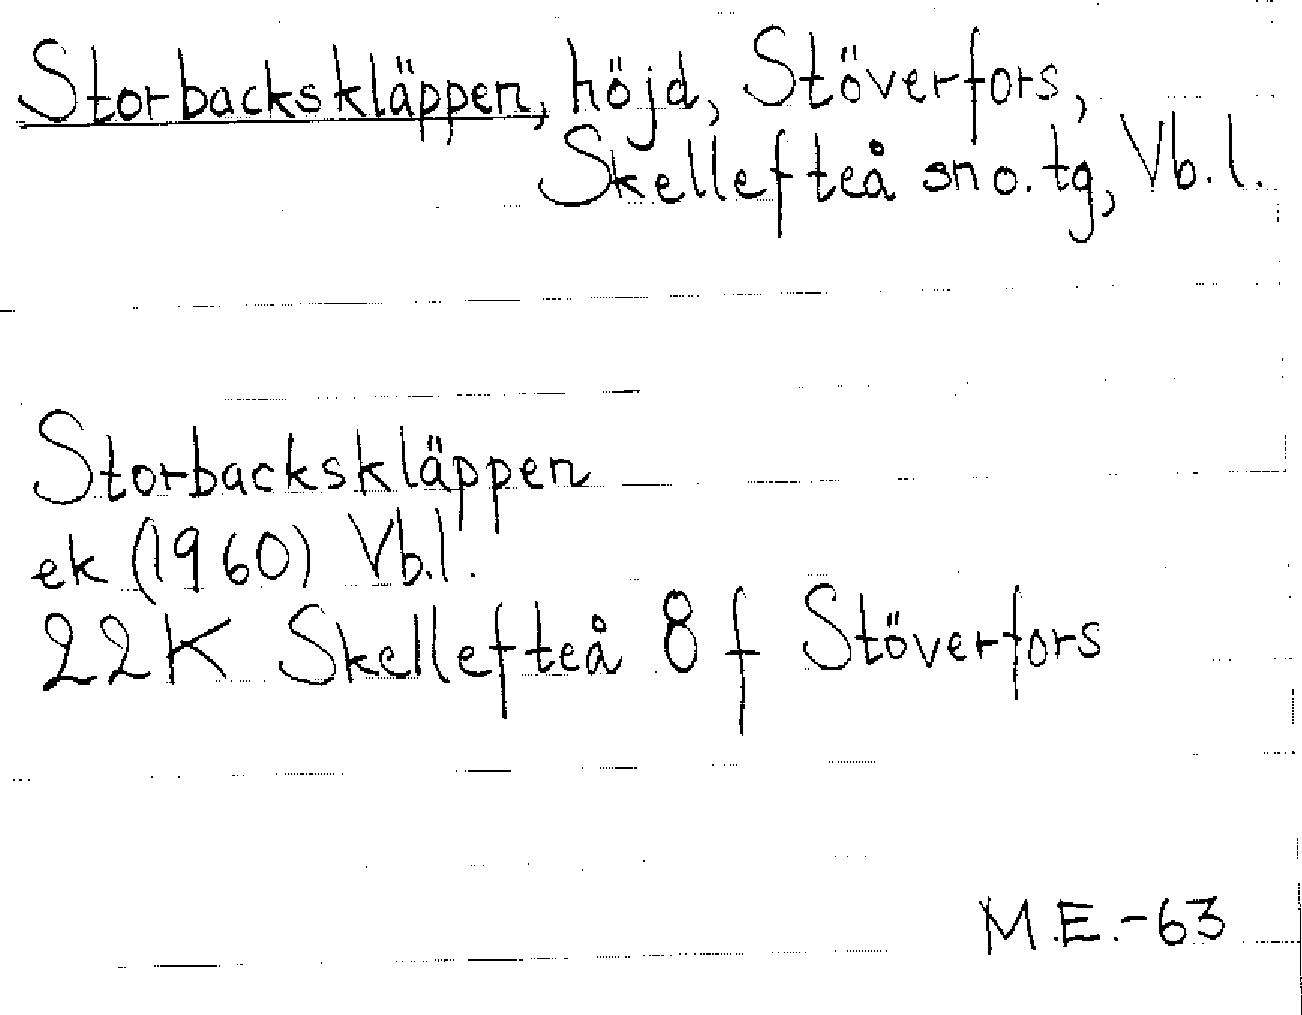 Storbackskläppen, höjd, Stöverfors,
Skellefteå sn o. tg, Vb. l.
Storbackskläppen
ek (1960) Vb.l.
22K Skellefteå 8 f Stöverfors
M.E.-63